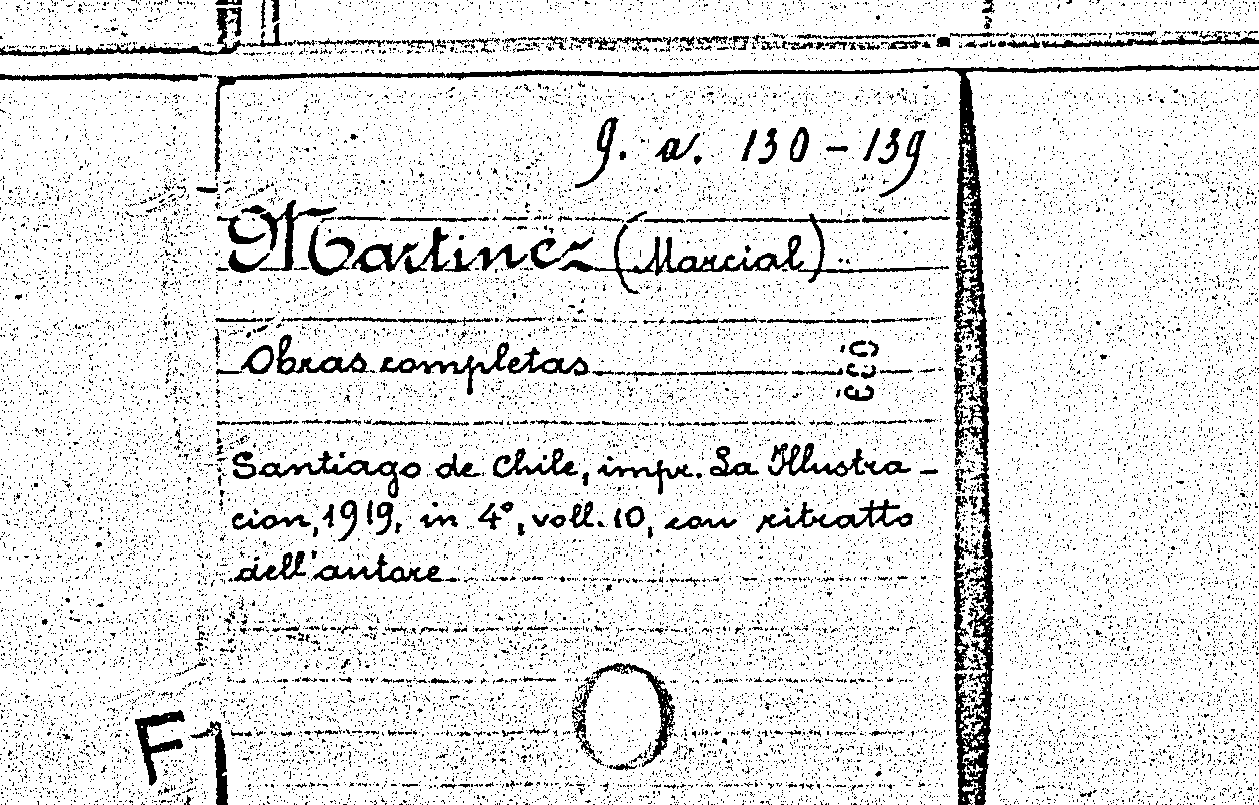 9. a. 130-139
Martinez (Marcial)
Obras completas
Santiago de Chile, impr. La Illustra-
cion, 1919, in 4°, voll. 10, con ritratto
dell'autore
F